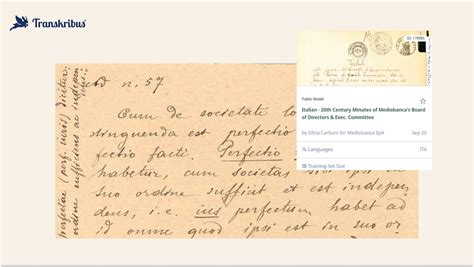 Transkribus
n. 57
Cum de societate
tinguenda est perfectio
fectio facti. Perfectio
habetur, cum societas
suo ordine sufficit et est indepen
dens, i.e. ius perfectum habet ad
id omne quod ipsi est in suo or
perfectae (perf. iuris) dicitur,
ordine sufficiens ac indepen
Public Model
Italian - 20th Century Minutes of Mediobanca's Board
of Directors & Exec. Committee
by Silvia Carboni for Mediobanca SpA
Sep 20
Languages
ITA
Training Set Size